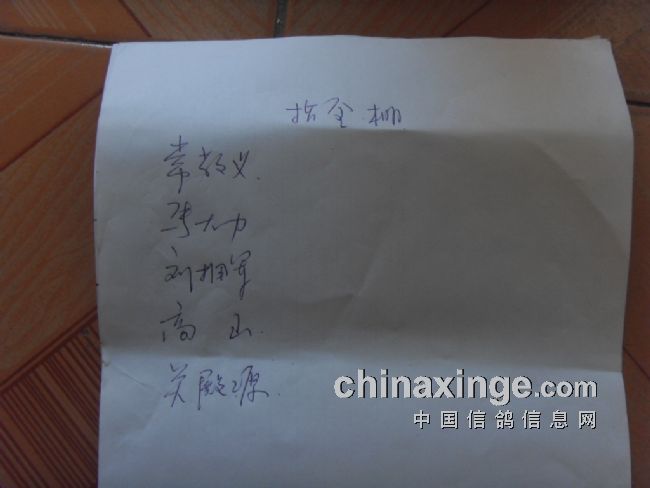 拾全棚
常敬义
马大力
刘拥军
高山
关殿源
chinaxinge.com
中国信鸽信息网